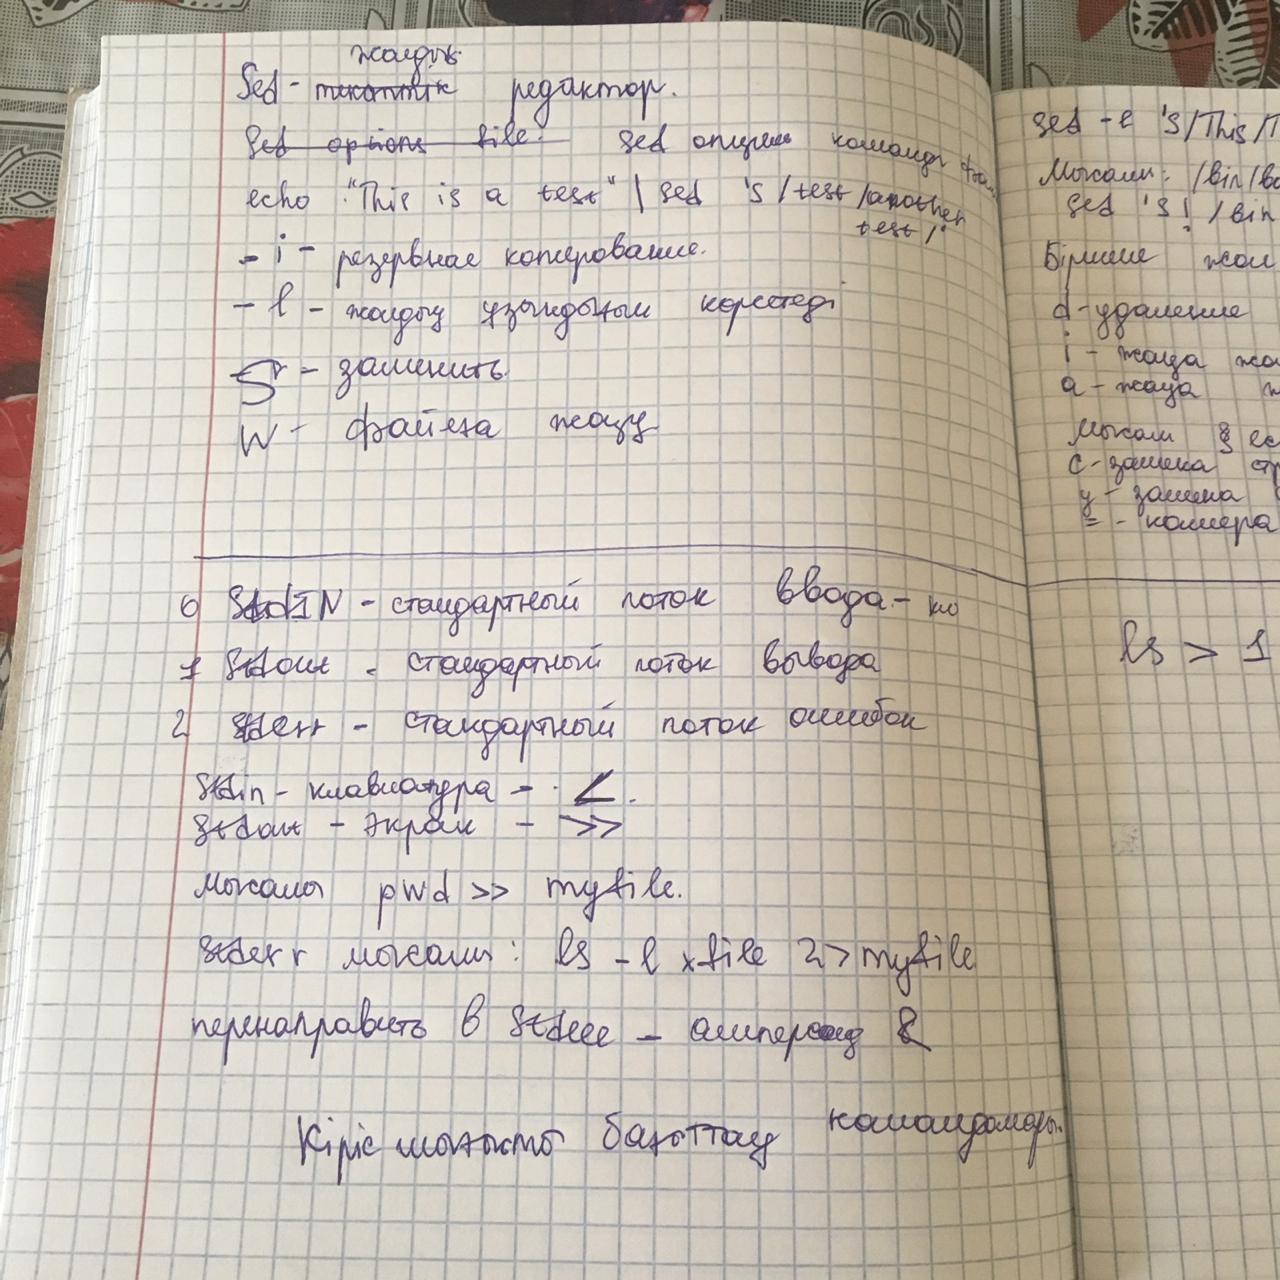 жолдық
Sed - текттік редактор.
Sed options file. sed опция команда файл
echo "This is a test" | sed 's/test/another
test/'
- i - резервное копирование.
- l - жолдың ұзындығын көрсетеді
S - заменить
W - файлға жазу
0 StdIN - стандартный поток ввода - но
1 Stdout - стандартный поток вывода
2 stderr - стандартный поток ошибок
Stdin - клавиатура - <.
Stdout - экран - >>
Мысалы pwd >> myfile.
Stderr мысалы: ls -l xfile 2> myfile
перенаправить в Stderr - амперсанд &
Кіріс шығысты бағыттау командалары.
sed -e 's/This/T
Мысалы: /bin/ba
sed 's! /bin
Бірнеше жол
d - удаление
i - жаңа жо
a - жаңа ж
Мысалы
c - замена стр
y - замена
= - номера
ls > 1